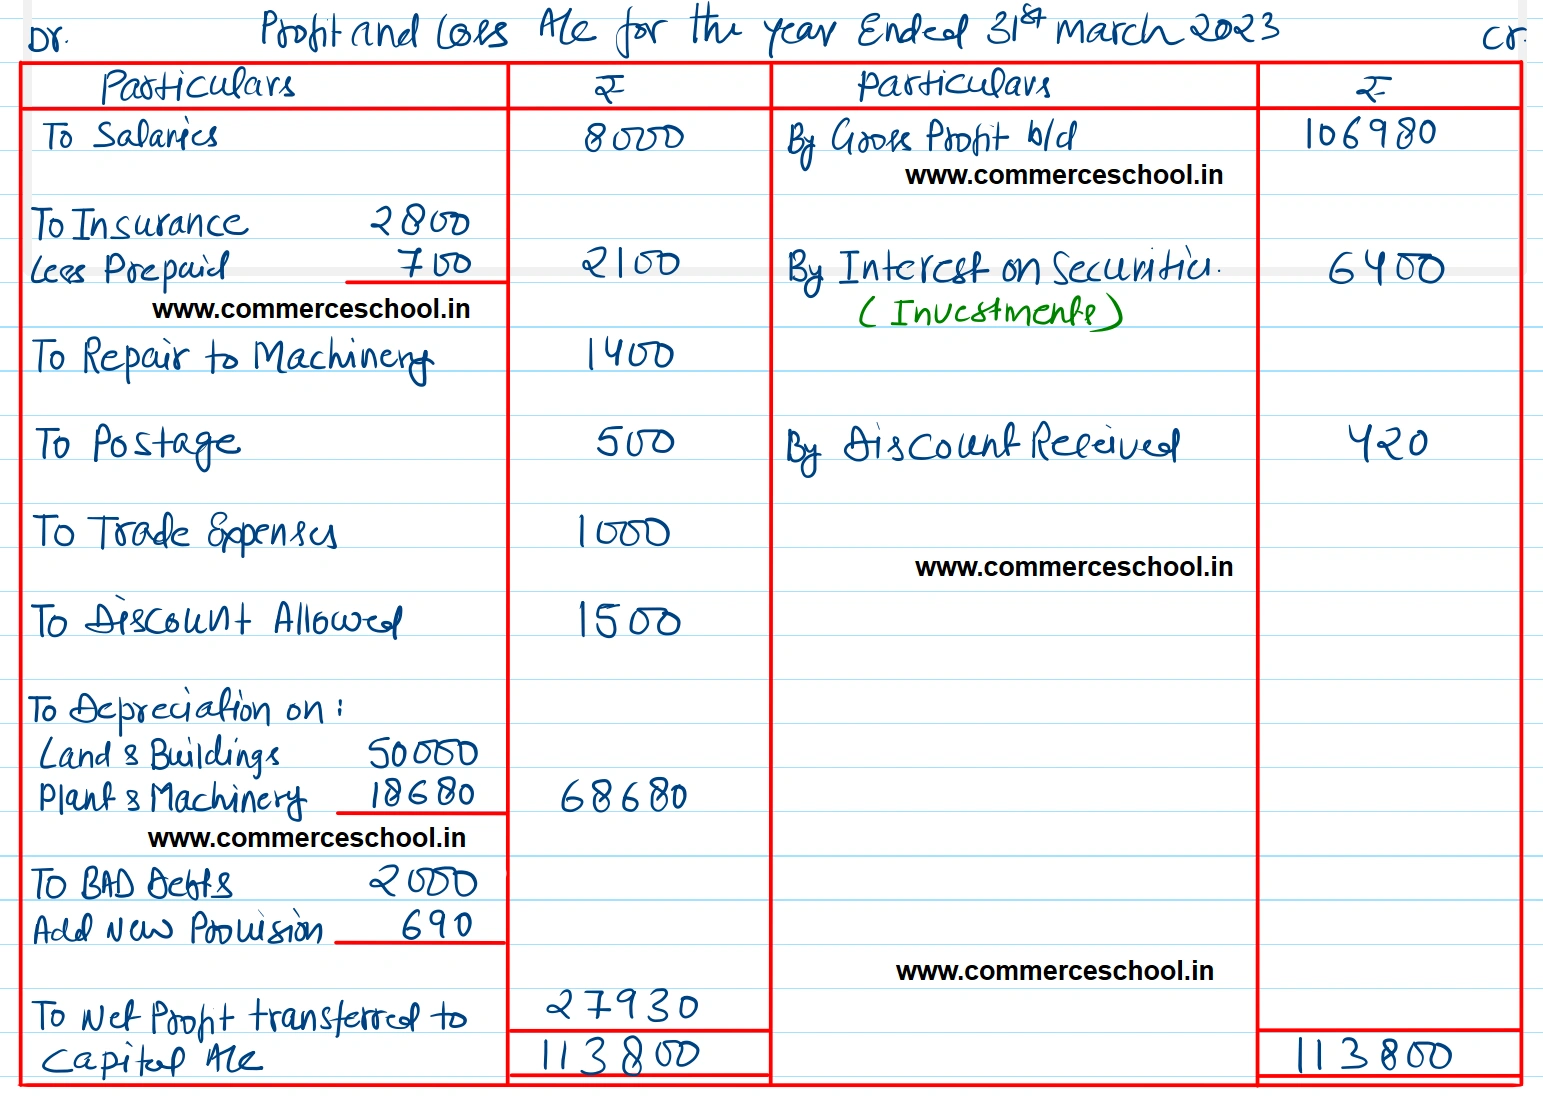 Dr. Profit and Loss A/c for the year Ended 31st March 2023 Cr.
Particulars ₹ Particulars ₹
To Salaries 8000 By Gross Profit b/d 106980
www.commerceschool.in
To Insurance 2800
Less Prepaid 700 2100 By Interest on Securities. 6400
www.commerceschool.in (Investments)
To Repair to Machinery 1400
To Postage 500 By Discount Received 420
To Trade Expenses 1000
www.commerceschool.in
To Discount Allowed 1500
To Depreciation on :
Land & Buildings 50000
Plant & Machinery 18680 68680
www.commerceschool.in
To BAD Debts 2000
Add New Provision 690
www.commerceschool.in
To Net Profit transferred to 27930
Capital A/c 113800 113800